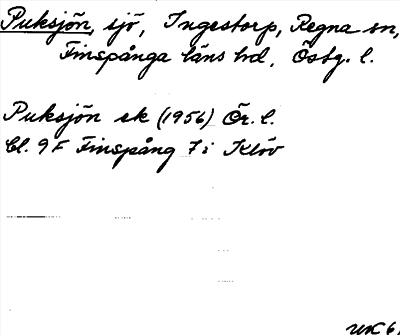 Puksjön, sjö, Ingestorp, Regna sn,
Finspånga läns hd, Östg. l.
Puksjön ek (1956) Ör. l.
Bl. 9F Finspång 7i Klöv